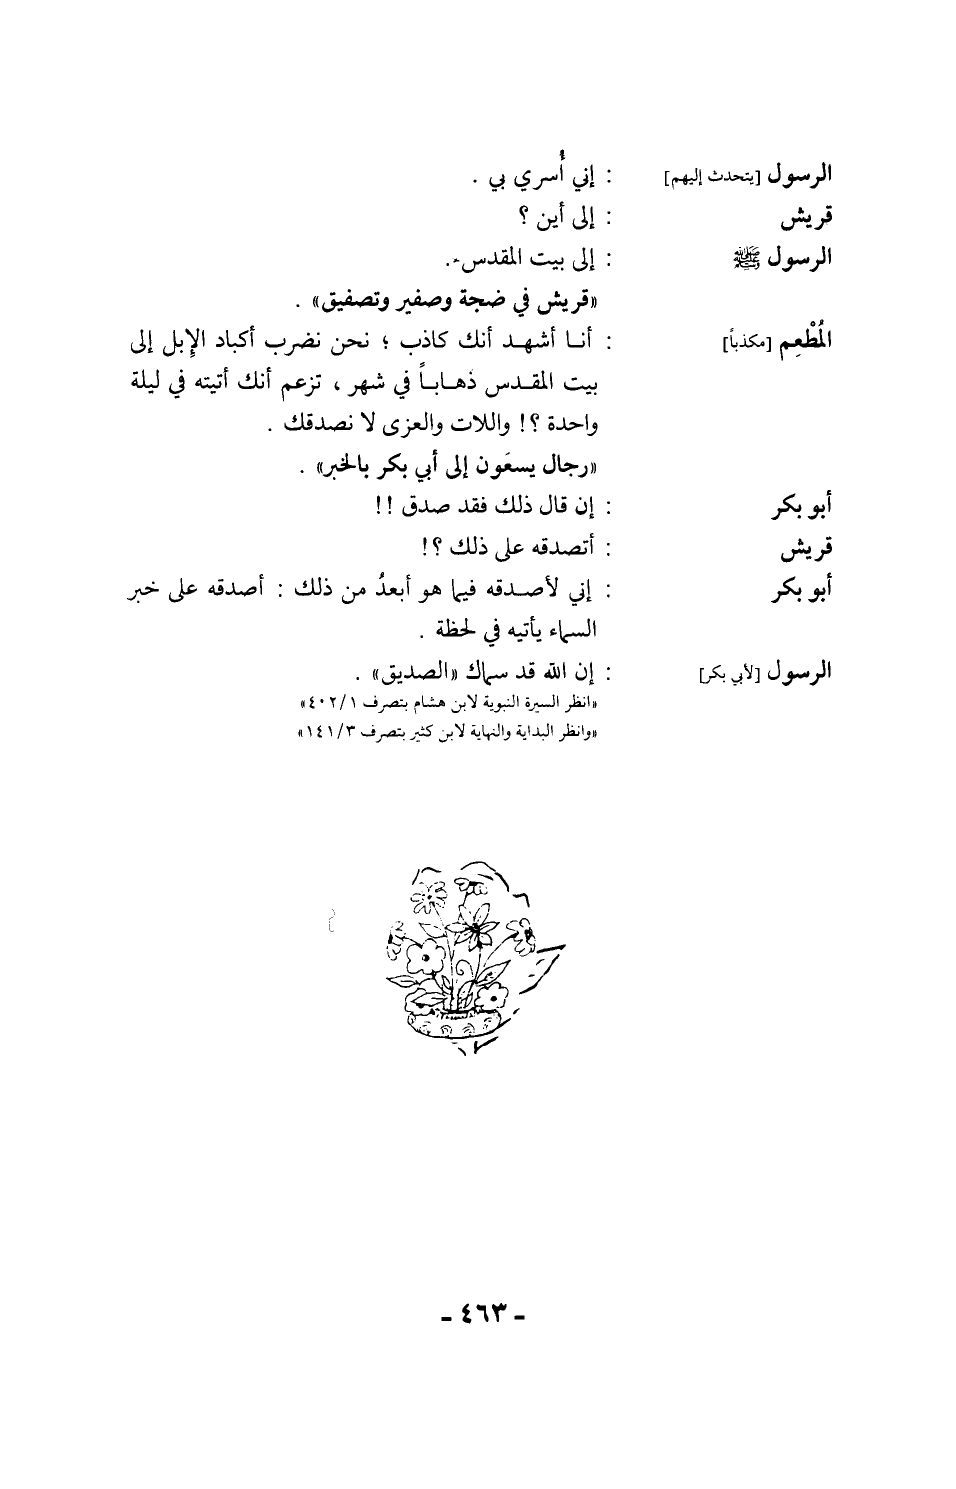 الرسول [يتحدث إليهم] : إني أُسري بي .
قريش : إلى أين ؟
الرسول ﷺ : إلى بيت المقدس.
«قريش في ضجة وصفير وتصفيق» .
المُطْعِم [مكذباً] : أنا أشهد أنك كاذب ؛ نحن نضرب أكباد الإبل إلى
بيت المقدس ذهاباً في شهر ، تزعم أنك أتيته في ليلة
واحدة ؟! واللات والعزى لا نصدقك .
«رجال يسعَون إلى أبي بكر بالخبر» .
أبو بكر : إن قال ذلك فقد صدق !!
قريش : أتصدقه على ذلك ؟!
أبو بكر : إني لأصدقه فيما هو أبعدُ من ذلك : أصدقه على خبر
السماء يأتيه في لحظة .
الرسول [لأبي بكر] : إن الله قد سماك «الصديق» .
«انظر السيرة النبوية لابن هشام بتصرف ٤٠٢/١»
«وانظر البداية والنهاية لابن كثير بتصرف ١٤١/٣»
- ٤٦٣ -